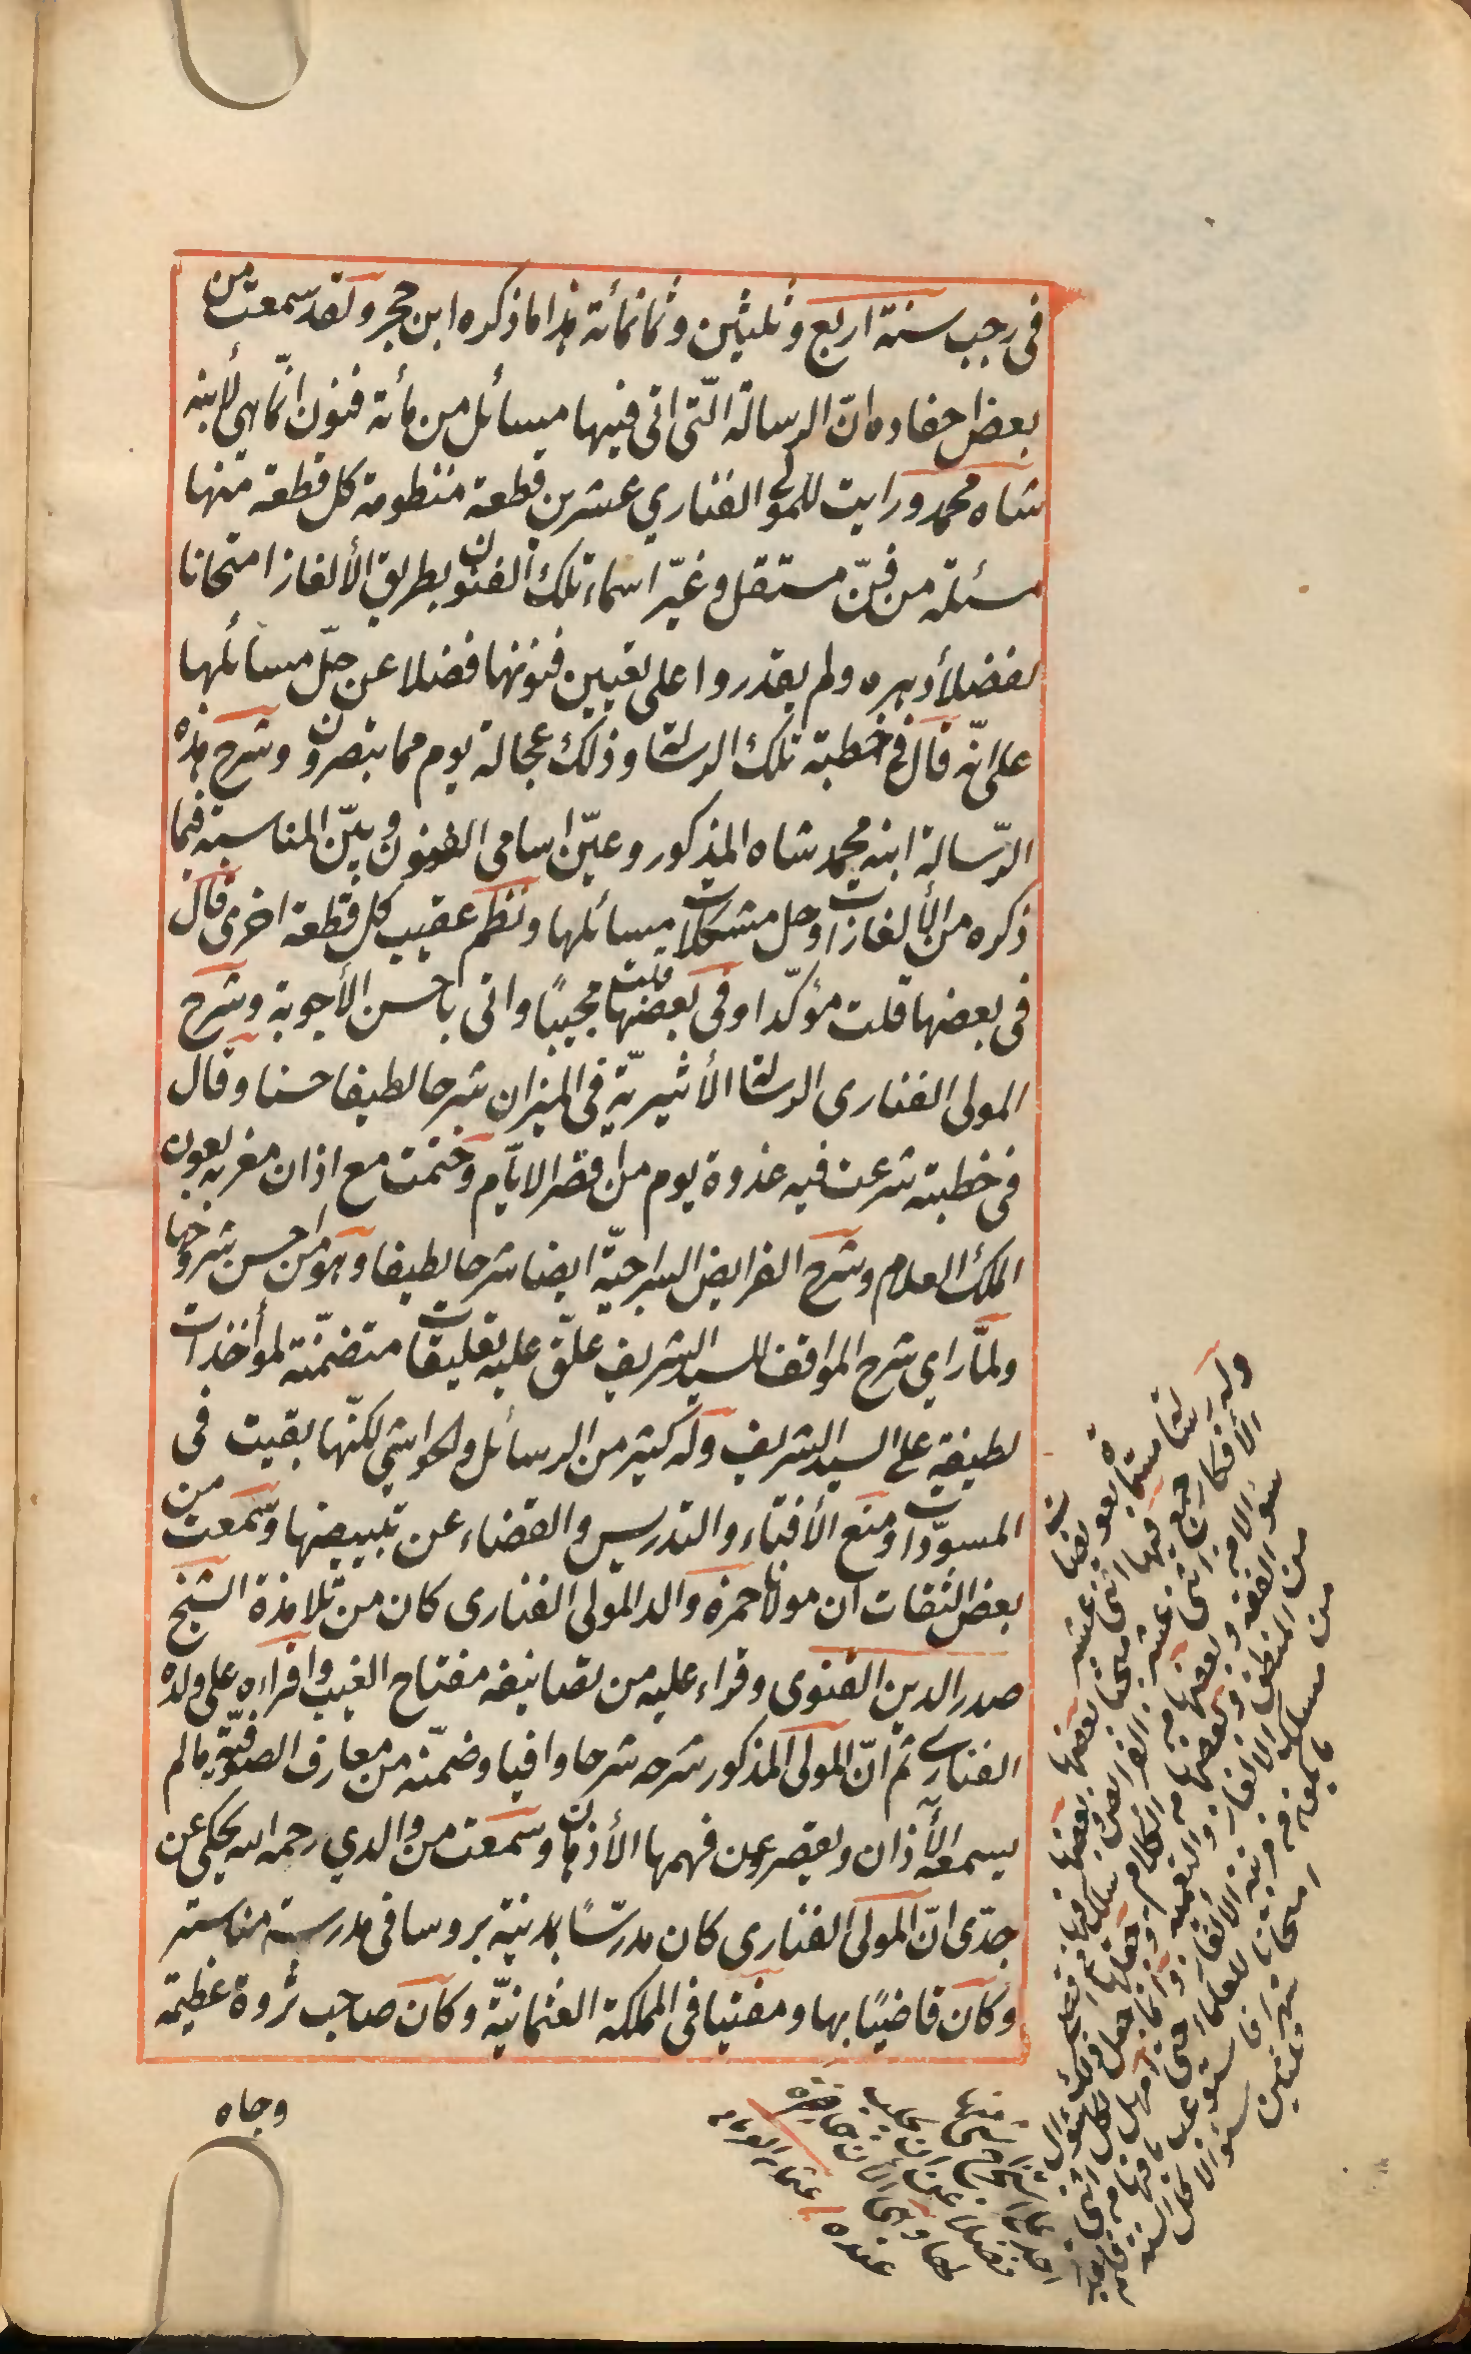 فى رجب سنة اربع وثلثين وثمانمأئة هذا ما ذكره ابن حجر ولقد سمعت من
بعض احفاده انّ الرسالة الّتى اتى فيها مسائل من مأئة فنون انّما هى لأبنه
شاه محمد ورايت للمولى الفناري عشرين قطعة منظومة كل قطعة منها
مسئلة من فنّ مستقل وغيّر اسماء تلك الفنون بطريق الألغاز امتحانا
لفضلأ دهره ولم يقدروا على تعيين فنونها فضلا عن حلّ مسائلها
على انّه قال فى خطبة تلك الرسالة وذلك عجالة يوم مما ينصرون وشرح هذه
الرّسالة ابنه محمد شاه المذكور وعيّن اسامى الفنون وبيّن المناسبة فيما
ذكره من الألغازات وحل مشكلات مسائلها ونظم عقيب كل قطعة اخرى قال
فى بعضها قلت مؤكّدا وفى بعضها قلت مجيبًا واتى باحسن الأجوبة وشرح
المولى الفنارى الرسالة الأثيريّة فى الميزان شرحا لطيفا حسنا وقال
فى خطبته شرعت فيه غدوة يوم من اقصر الايّام وختمت مع اذان مغربه بعون
الملك العلام وشرح الفرايض السراجيّة ايضا شرحا لطيفا وهو من احسن شروحها
ولمّا راى شرح المواقف للسيد الشريف علّق عليه تعليقات متضمّنة لمؤاخذات
لطيفة على السيد الشريف وله كثير من الرسائل والحواشى لكنّها بقيت فى
المسوّدات ومنع الأفتاء والتدريس والقضاء عن تبييضها وسمعت من
بعض الثقات ان مولانا حمزة والد المولى الفنارى كان من تلامذة الشيخ
صدر الدين القنوى وقراء عليه من تصانيفه مفتاح الغيب واقراءه على ولده
الفنارى ثم انّ المولى المذكور شرحه شرحا وافيا وضمّنه من معارف الصوفيّة ما لم
يسمعه الآذان ويقصر عن فهمها الأذهان وسمعت من والدي رحمه الله يحكى عن
جدّى انّ المولى الفنارى كان مدرّسًا بمدينة بروسا فى مدرسة مناستر
وكان قاضيًا بها ومفتيا فى المملكة العثمانيّة وكان صاحب ثروة عظيمة
وجاه